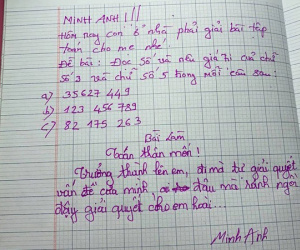 MINH ANH !!!
Hôm nay con ở nhà phải giải bài tập
toán cho mẹ nhé.
Đề bài: Đọc số và nêu giá trị của chữ
số 3 và chữ số 5 trong mỗi câu sau:
a) 35627 449
b) 123 456 789
c) 82 175 263
Bài làm
Toán thân mến!
Trưởng thành lên em, đi mà tự giải quyết
vấn đề của mình đây mà rảnh ngồi
đấy giải quyết cho em hoài...
Minh Anh